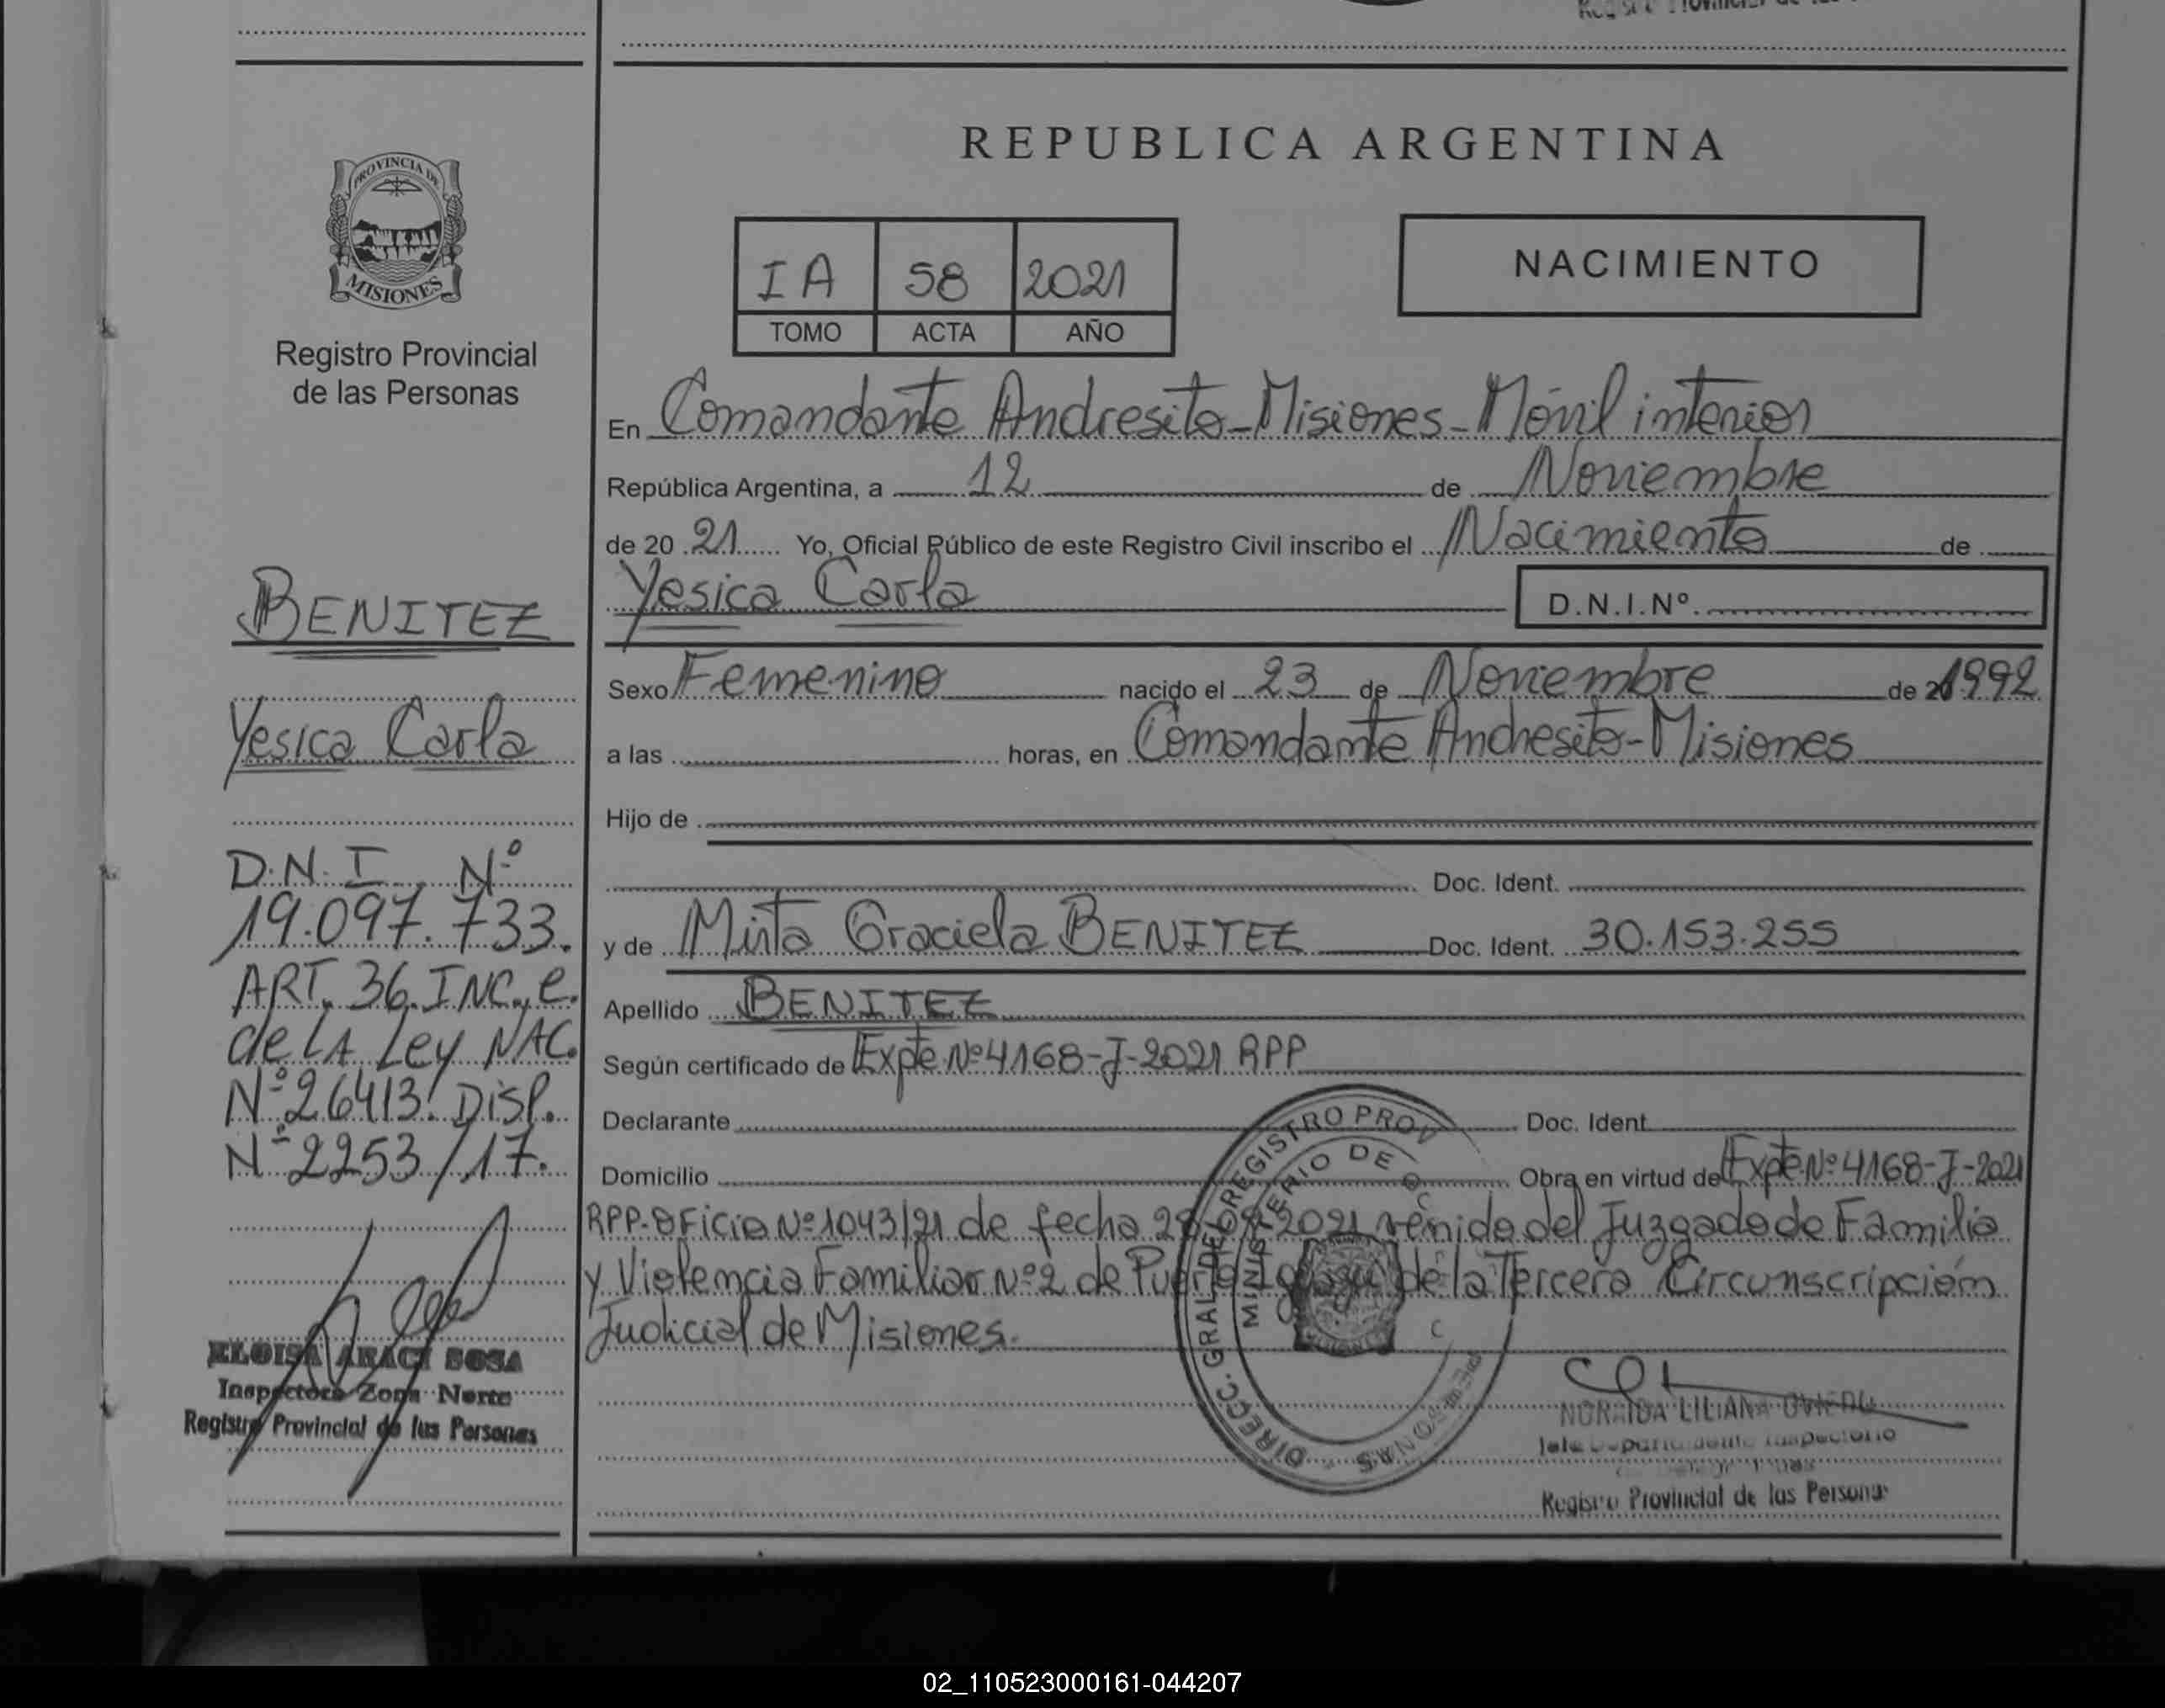 REPUBLICA ARGENTINA
PROVINCIA DE
MISIONES
Registro Provincial
de las Personas
IA 58 2021
TOMO ACTA AÑO
NACIMIENTO
BENITEZ
Yesica Carla
D.N.I. Nº
19.097.733.
ART. 36. INC. e.
de LA Ley NAC.
Nº 26413. DISP.
Nº 2253/17.
ELOISA ARACI SOSA
Inspectora Zona Norte
Registro Provincial de las Personas
En Comandante Andresito-Misiones-Móvil interior
República Argentina, a 12 de Noviembre
de 20 21 Yo, Oficial Público de este Registro Civil inscribo el Nacimiento de
Yesica Carla D.N.I.Nº.
Sexo Femenino nacido el 23 de Noviembre de 20 1992
a las horas, en Comandante Andresito-Misiones
Hijo de
Doc. Ident.
y de Mirta Graciela BENITEZ Doc. Ident. 30.153.255
Apellido BENITEZ
Según certificado de Expte Nº 4168-J-2021 RPP
Declarante Doc. Ident.
Domicilio Obra en virtud de Expte Nº 4168-J-2021
RPP-Oficio Nº 1043/21 de fecha 2021 venido del Juzgado de Familia
y Violencia Familiar Nº 2 de Puerto Iguazú de la Tercera Circunscripción
Judicial de Misiones.
DIRECC. GRAL DEL REGISTRO PROV
MINISTERIO DE
LILIANA
Registro Provincial de las Personas
02_110523000161-044207